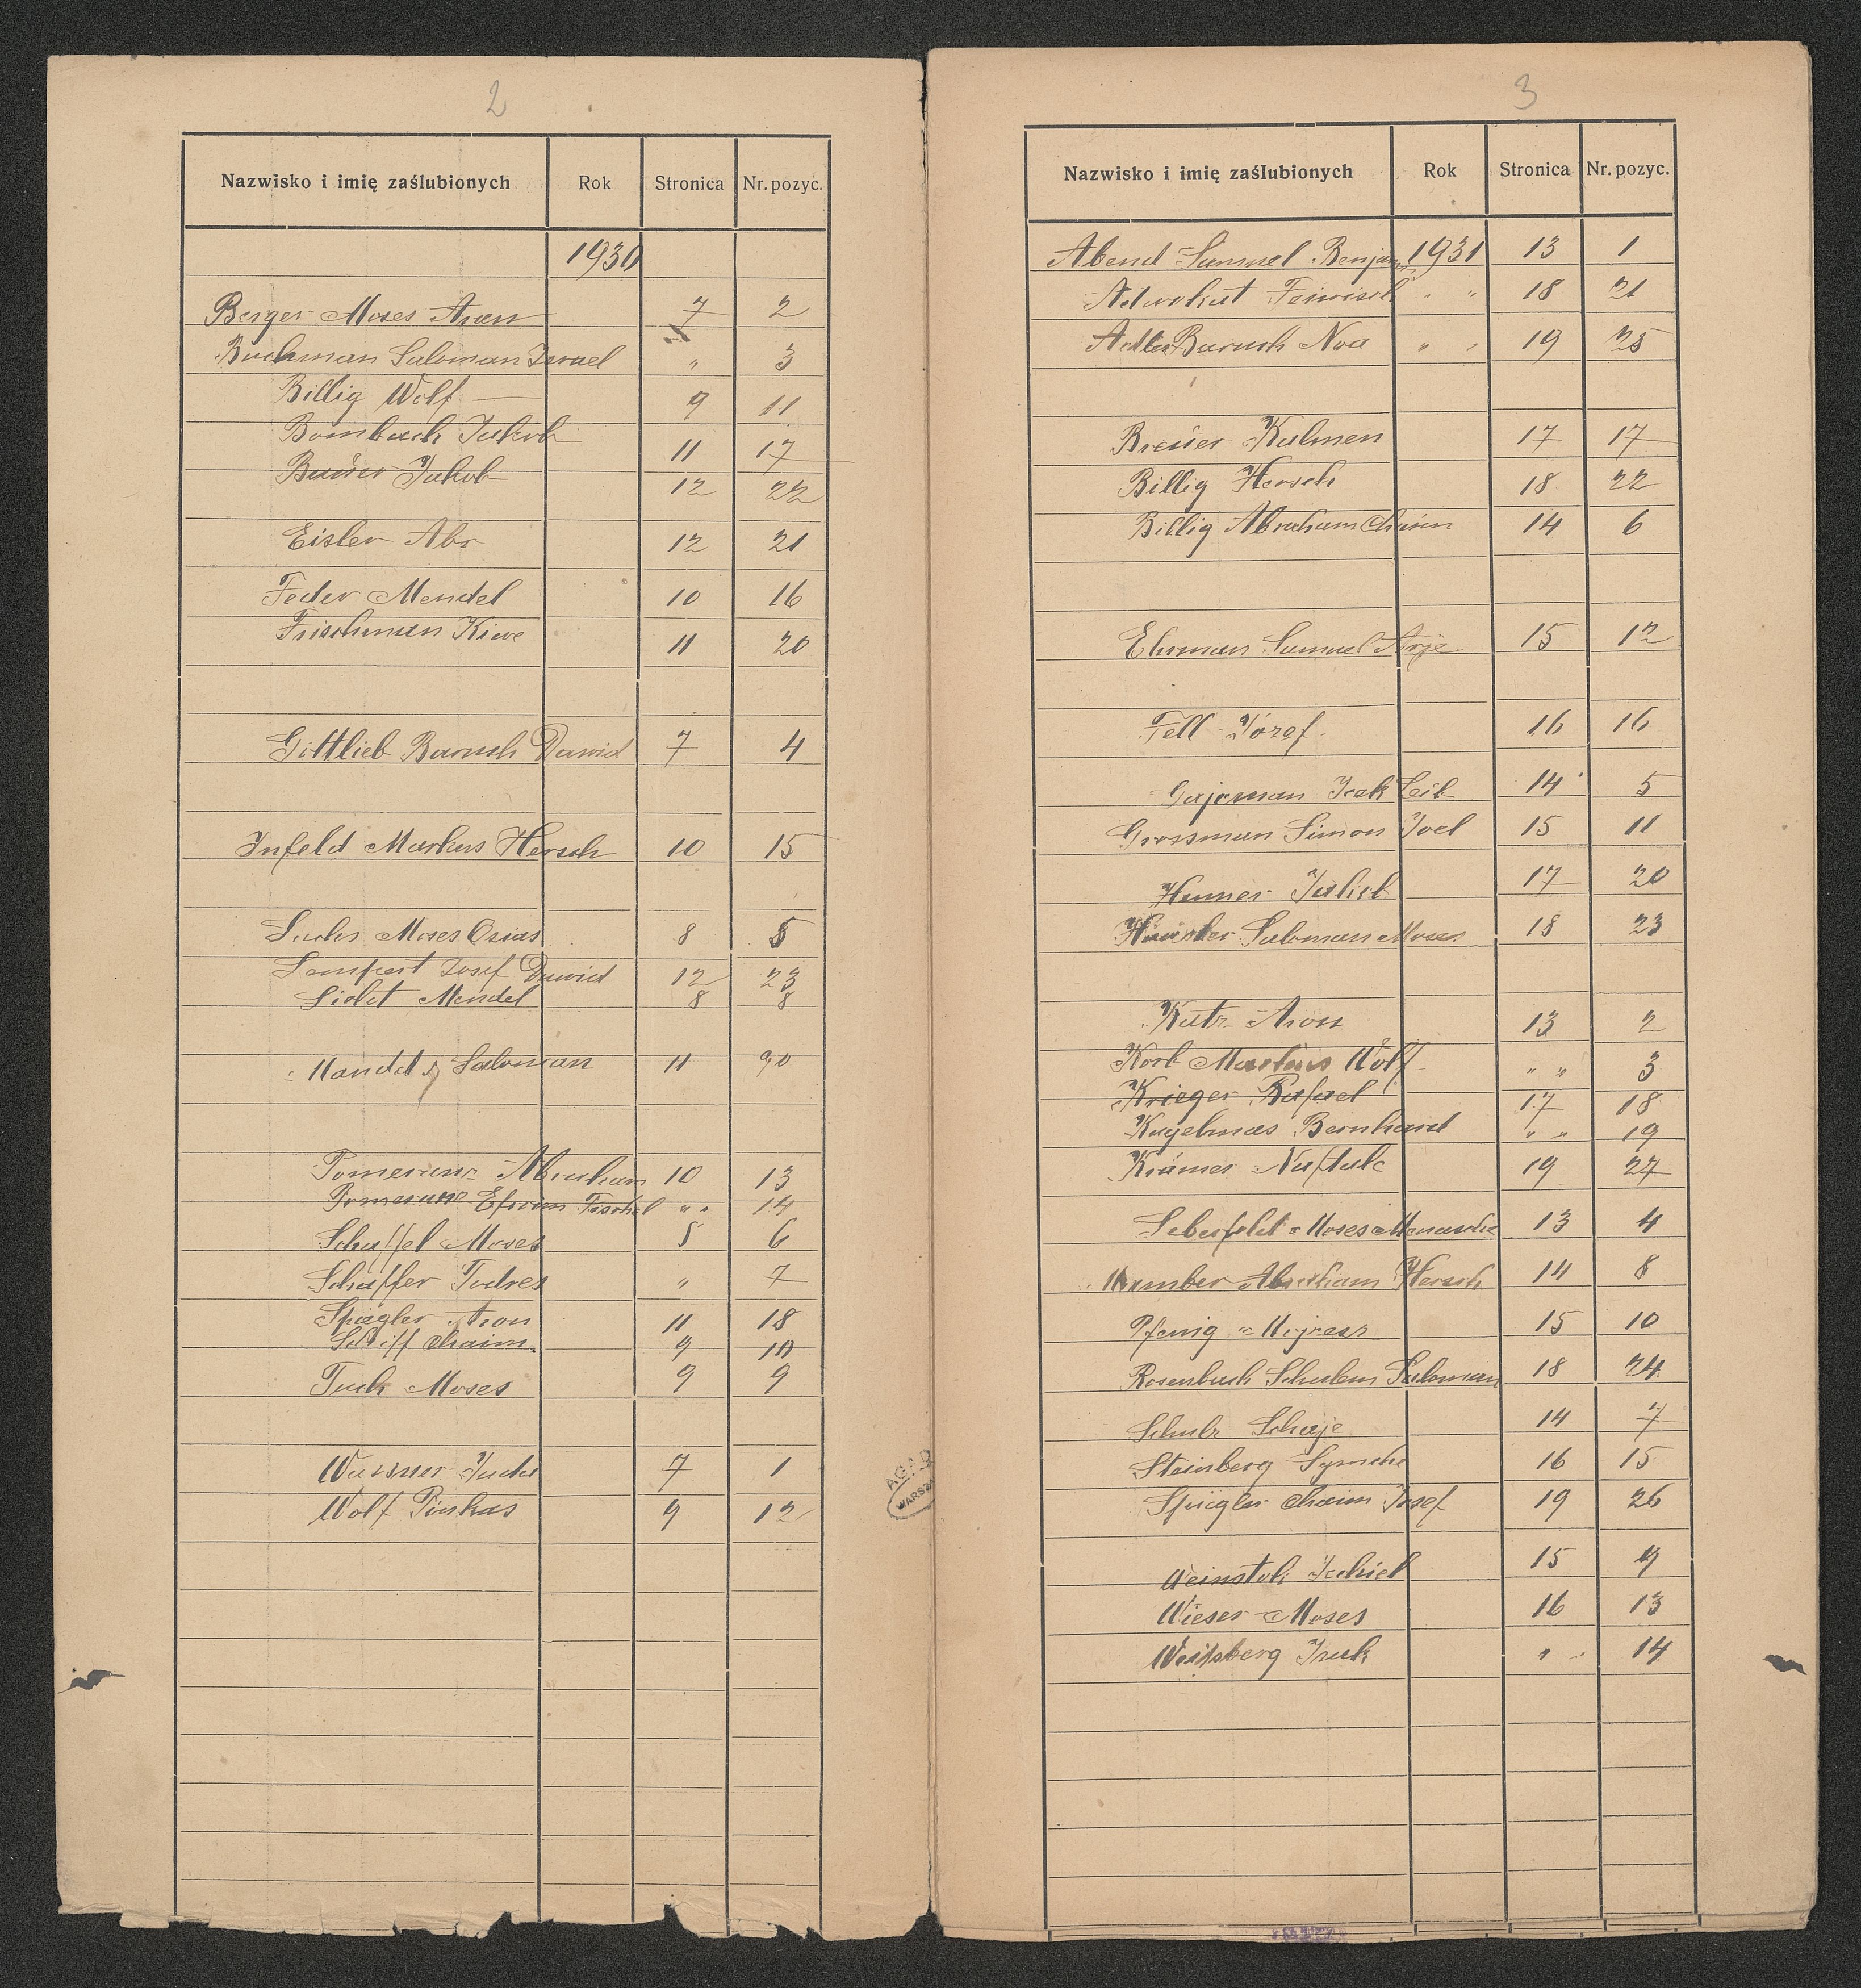 2
Nazwisko i imię zaślubionych Rok Stronica Nr. pozyc.
1930
Berger Moses Aron 7 2
Buchman Saloman Israel " 3
Billig Wolf — 9 11
Bombach Jakob 11 17
Bauer Jakob 12 22
Eisler Abr 12 21
Feder Mendel 10 16
Frischman Kiwe 11 20
Gottlieb Baruch Dawid 7 4
Infeld Markus Hersch 10 15
Luchs Moses Osias 8 5
Lempert Josef Dawid 12 23
Licht Mendel 8 8
Mandel Saloman 11
Pomeranz Abraham 10 13
Pomeranz Efroim Fischel " " 14
Schaffel Moses 8 6
Schaffer Todres " 7
Spiegler Aron 11 18
Schiff Chaim 9 10
Tuch Moses 9 9
Wassner Juda 7 1
Wolf Pinkas 9 12
AGAD
WARSZA
3
Nazwisko i imię zaślubionych Rok Stronica Nr. pozyc.
Abend Samuel Benjam 1931 13 1
Adwokat Feiwisch " " 18 21
Adler Baruch Noa " " 19 25
Breuer Kalmen 17 17
Billig Hersch 18 22
Billig Abraham Chaim 14 6
Ehrman Samuel Arje 15 12
Fell Józef 16 16
Gajerman Icek Leib 14 5
Grossman Simon Joel 15 11
Hamer Jakob 17 20
Saloman Moses 18 23
Katz Aron 13 2
Korb Markus Wolf " " 3
Krieger Rafael 17 18
Kugelmas Bernhard " " 19
Krämer Naftale 19 27
Leberfeld Moses Menasche 13 4
Mamber Abraham Hersch 14 8
Pfenig Mojzesz 15 10
Rosenbach Schulem Saloman 18 24
Schulz Schaje 14 7
Steinberg Symche 16 15
Spiegler Chaim Josef 19 26
Weinstok Jechiel 15 9
Wieser Moses 16 13
Weissberg Izak " " 14